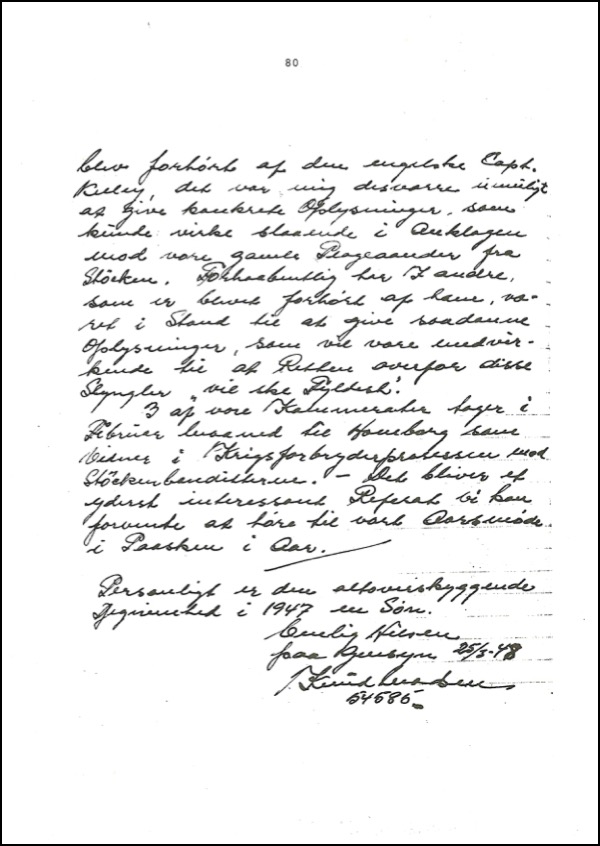 80
blev forhørt af den engelske Capt.
det var mig desværre umuligt
at give konkrete Oplysninger, som
kunde virke slaaende i Anklagen
mod vore gamle Plageaander fra
Stöcken. Forhaabentlig har I andre,
som er blevet forhørt af ham, væ-
ret i Stand til at give saadanne
Oplysninger, som vil være medvir-
kende til at Retten overfor disse
Slyngler „vil ske Fyldest".
3 af vore Kammerater tager i
Februar Maaned til Hamborg som
Vidner i Krigsforbryderprocessen mod
Stöckenbanditterne. – Det bliver et
yderst interessant Referat vi kan
forvente at høre til vort Aarsmøde
i Paasken i Aar.
Personligt er den altoverskyggende
Begivenhed i 1947 en Søn.
Venlig Hilsen
paa Gensyn 25/1-48
Knud Madsen
54585